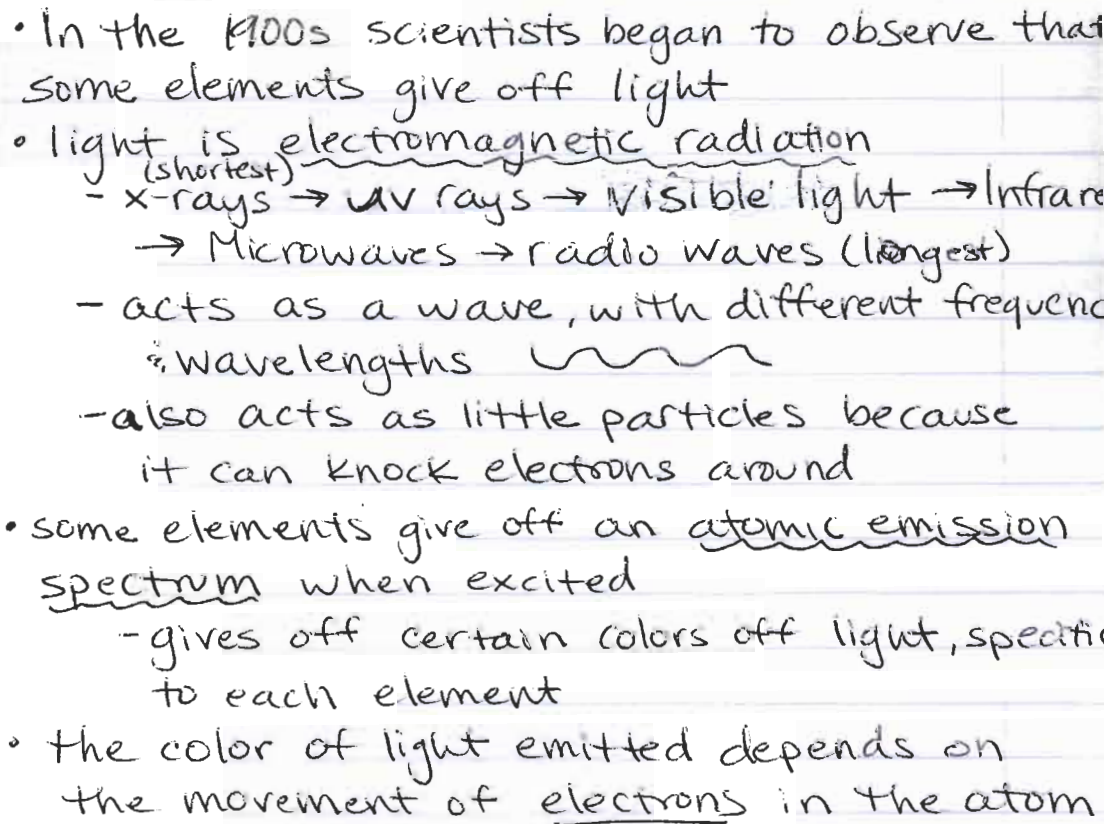 • In the 1900s scientists began to observe that
some elements give off light
• light is electromagnetic radiation
(shortest)
- x-rays → UV rays → Visible light → Infrare
→ Microwaves → radio waves (longest)
- acts as a wave, with different frequenc
& wavelengths
- also acts as little particles because
it can knock electrons around
• some elements give off an atomic emission
spectrum when excited
- gives off certain colors off light, specific
to each element
• the color of light emitted depends on
the movement of electrons in the atom